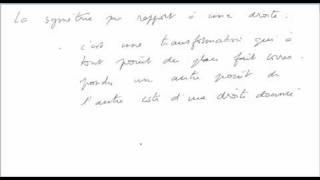 La symétrie par rapport à une droite.
. c'est une transformation qui à
tout point du plan fait corres
pondre un autre point de
l'autre coté d'une droite donnée